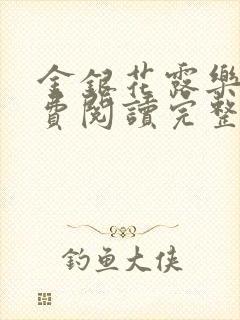 金銀花露樂
費閱讀完整
釣魚大俠